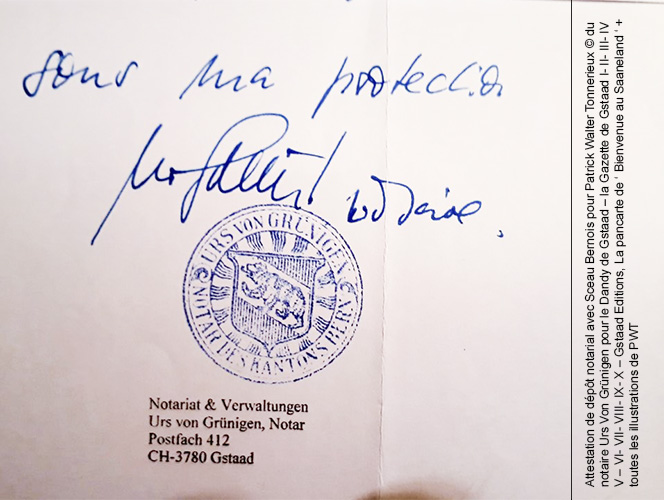 sous ma protection
notaire.
URS VON GRÜNIGEN
NOTAR DES KANTONS BERN
Notariat & Verwaltungen
Urs von Grünigen, Notar
Postfach 412
CH-3780 Gstaad
Attestation de dépôt notarial avec Sceau Bernois pour Patrick Walter Tonnerieux © du
notaire Urs Von Grünigen pour le Dandy de Gstaad – la Gazette de Gstaad I- II- III- IV
V – VI- VII- VIII- IX- X – Gstaad Editions, La pancarte de ' Bienvenue au Saaneland ' +
toutes les illustrations de PWT